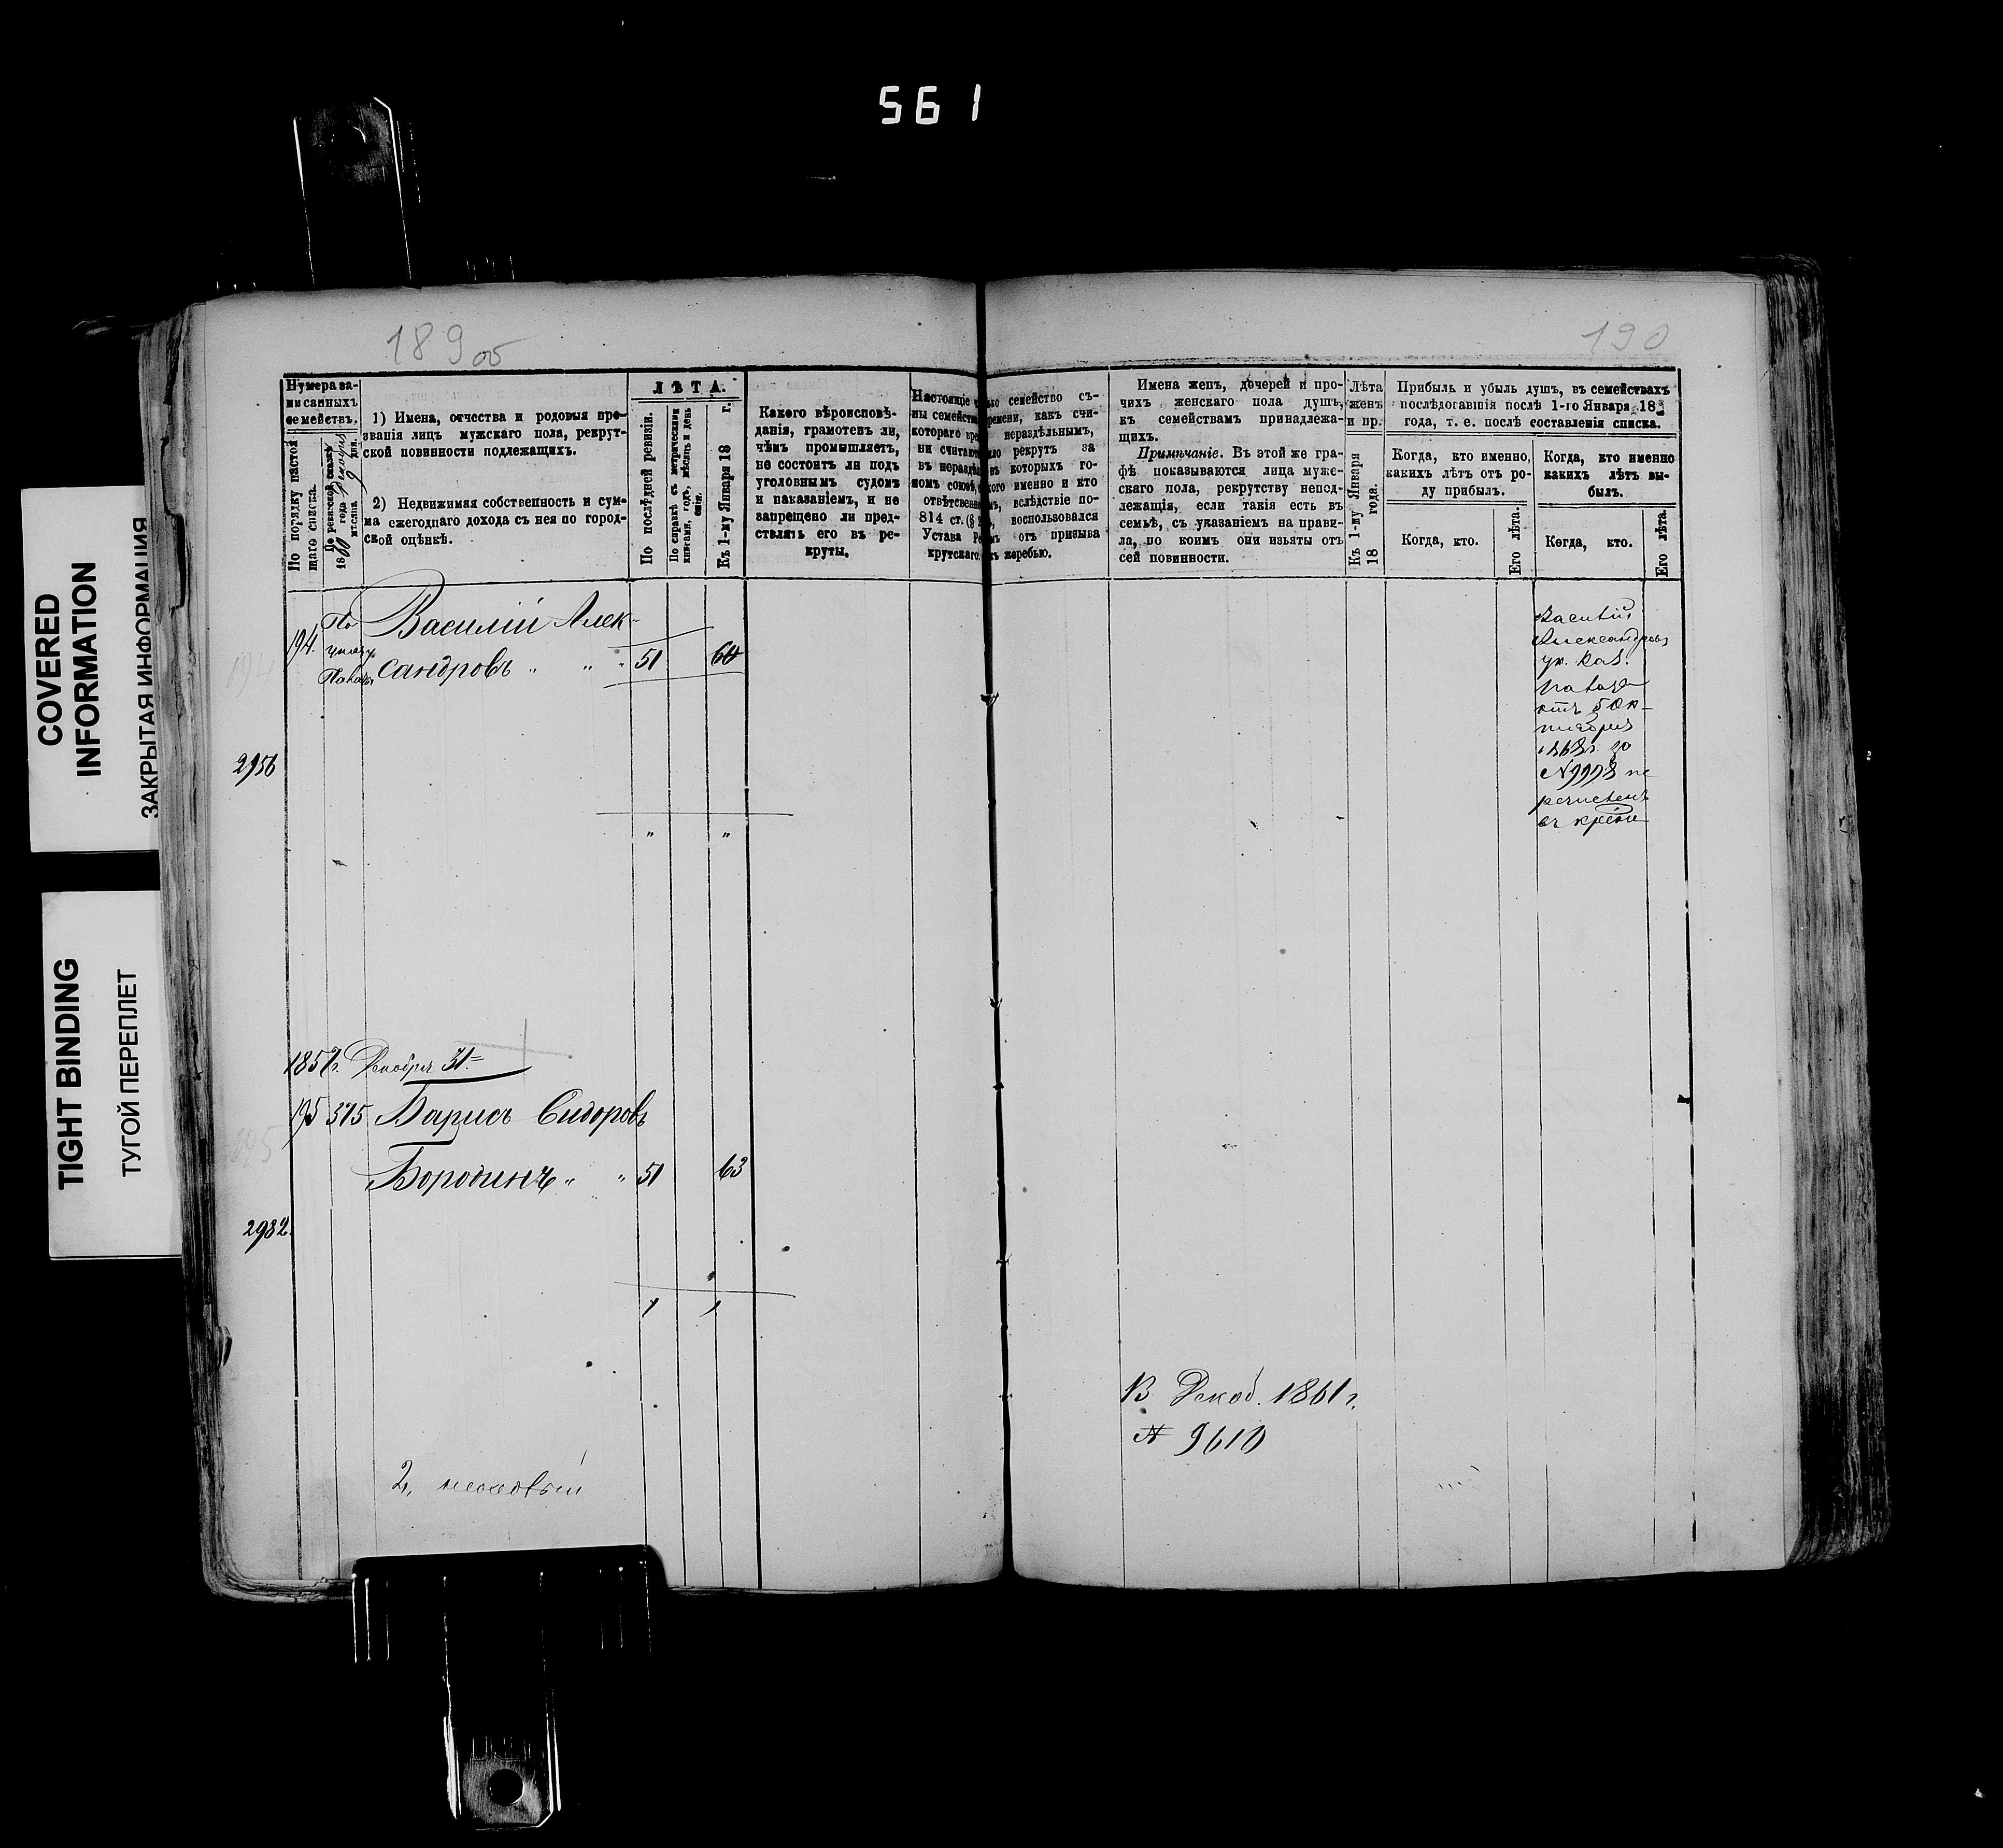 561
COVERED
INFORMATION
ЗАКРЫТАЯ ИНФОРМАЦИЯ
TIGHT BINDING
ТУГОЙ ПЕРЕПЛЕТ
189 об
190
Нумера за-
писанныхъ
семействъ.
По порядку настоя
щаго списка.
По ревизской сказкѣ
1860 года Декабря
мѣсяца 9 дня.
1) Имена, отчества и родовыя про-
званія лицъ мужскаго пола, рекрут-
ской повинности подлежащихъ.
2) Недвижимая собственность и сум-
ма ежегоднаго дохода съ нея по город-
ской оцѣнкѣ.
ЛѢТА.
По послѣдней ревизіи.
По справкѣ съ метрическими
книгами, годъ, мѣсяцъ и день
Къ 1-му Января 18 г.
Какого вѣроисповѣ-
данія, грамотенъ ли,
чѣмъ промышляетъ,
не состоитъ ли подъ
уголовнымъ судомъ
и наказаніемъ, и не
запрещено ли пред-
ставлять его въ ре-
круты.
Настоящіе
ны семейств
котораго вре
ни считают
въ неразд
номъ союзѣ,
отвѣтствен
814 ст. (§
Устава Ре
крутскаго.
семейство съ-
времени, какъ счи-
нераздѣльнымъ,
рекрутъ за
въ которыхъ го-
кого именно и кто
вслѣдствіе по-
воспользовался
отъ призыва
жеребью.
Имена женъ, дочерей и про-
чихъ женскаго пола душъ,
къ семействамъ принадлежа-
щихъ.
Примѣчаніе. Въ этой же гра-
фѣ показываются лица муже-
скаго пола, рекрутству непод-
лежащія, если такія есть въ
семьѣ, съ указаніемъ на прави-
ла, по коимъ они изъяты отъ
сей повинности.
Лѣта
женъ
и пр.
Къ 1-му Января
18 года.
Прибыль и убыль душъ, въ семействахъ
послѣдовавшія послѣ 1-го Января 18
года, т. е. послѣ составленія списка.
Когда, кто именно,
какихъ лѣтъ отъ ро-
ду прибылъ.
Когда, кто именно
какихъ лѣтъ вы-
былъ.
Когда, кто.
Его лѣта.
Когда, кто.
Его лѣта.
194
194. По Василій Алек-
сандровъ " " " 51 60
2956
" "
Василій
Александровъ
ук. Каз.
Палаты
отъ 5 Ок-
тября
1868г. за
№ 9998 пе
речисленъ
1857г. Декабря 31=
195 575 Барисъ Сидоровъ
195
Бородинъ " " 51 63
2982.
1 1
В Декаб. 1861 г.
№ 9610
2,